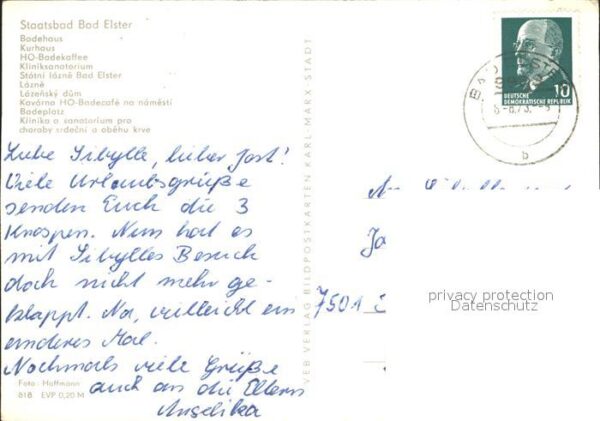 Staatsbad Bad Elster
Badehaus
Kurhaus
HO-Badekaffee
Kliniksanatorium
Státní lázně Bad Elster
Lázně
Lázeňský dům
Kavárna HO-Badecafé na náměstí
Badeplatz
Klinika a sanatorium pro
choroby srdeční a oběhu krve
Liebe Sibylle, lieber Jost!
Viele Urlaubsgrüße
senden Euch die 3
Knospen. Nun hat es
mit Sibylles Besuch
doch nicht mehr ge-
klappt. Na, vielleicht ein
anderes Mal.
Nochmals viele Grüße
auch an die Eltern
Angelika
Foto: Hoffmann
618 EVP 0,20 M
VEB VERLAG BILDPOSTKARTEN KARL-MARX-STADT
10
DEUTSCHE
DEMOKRATISCHE REPUBLIK
BAD
b
7501
privacy protection
Datenschutz